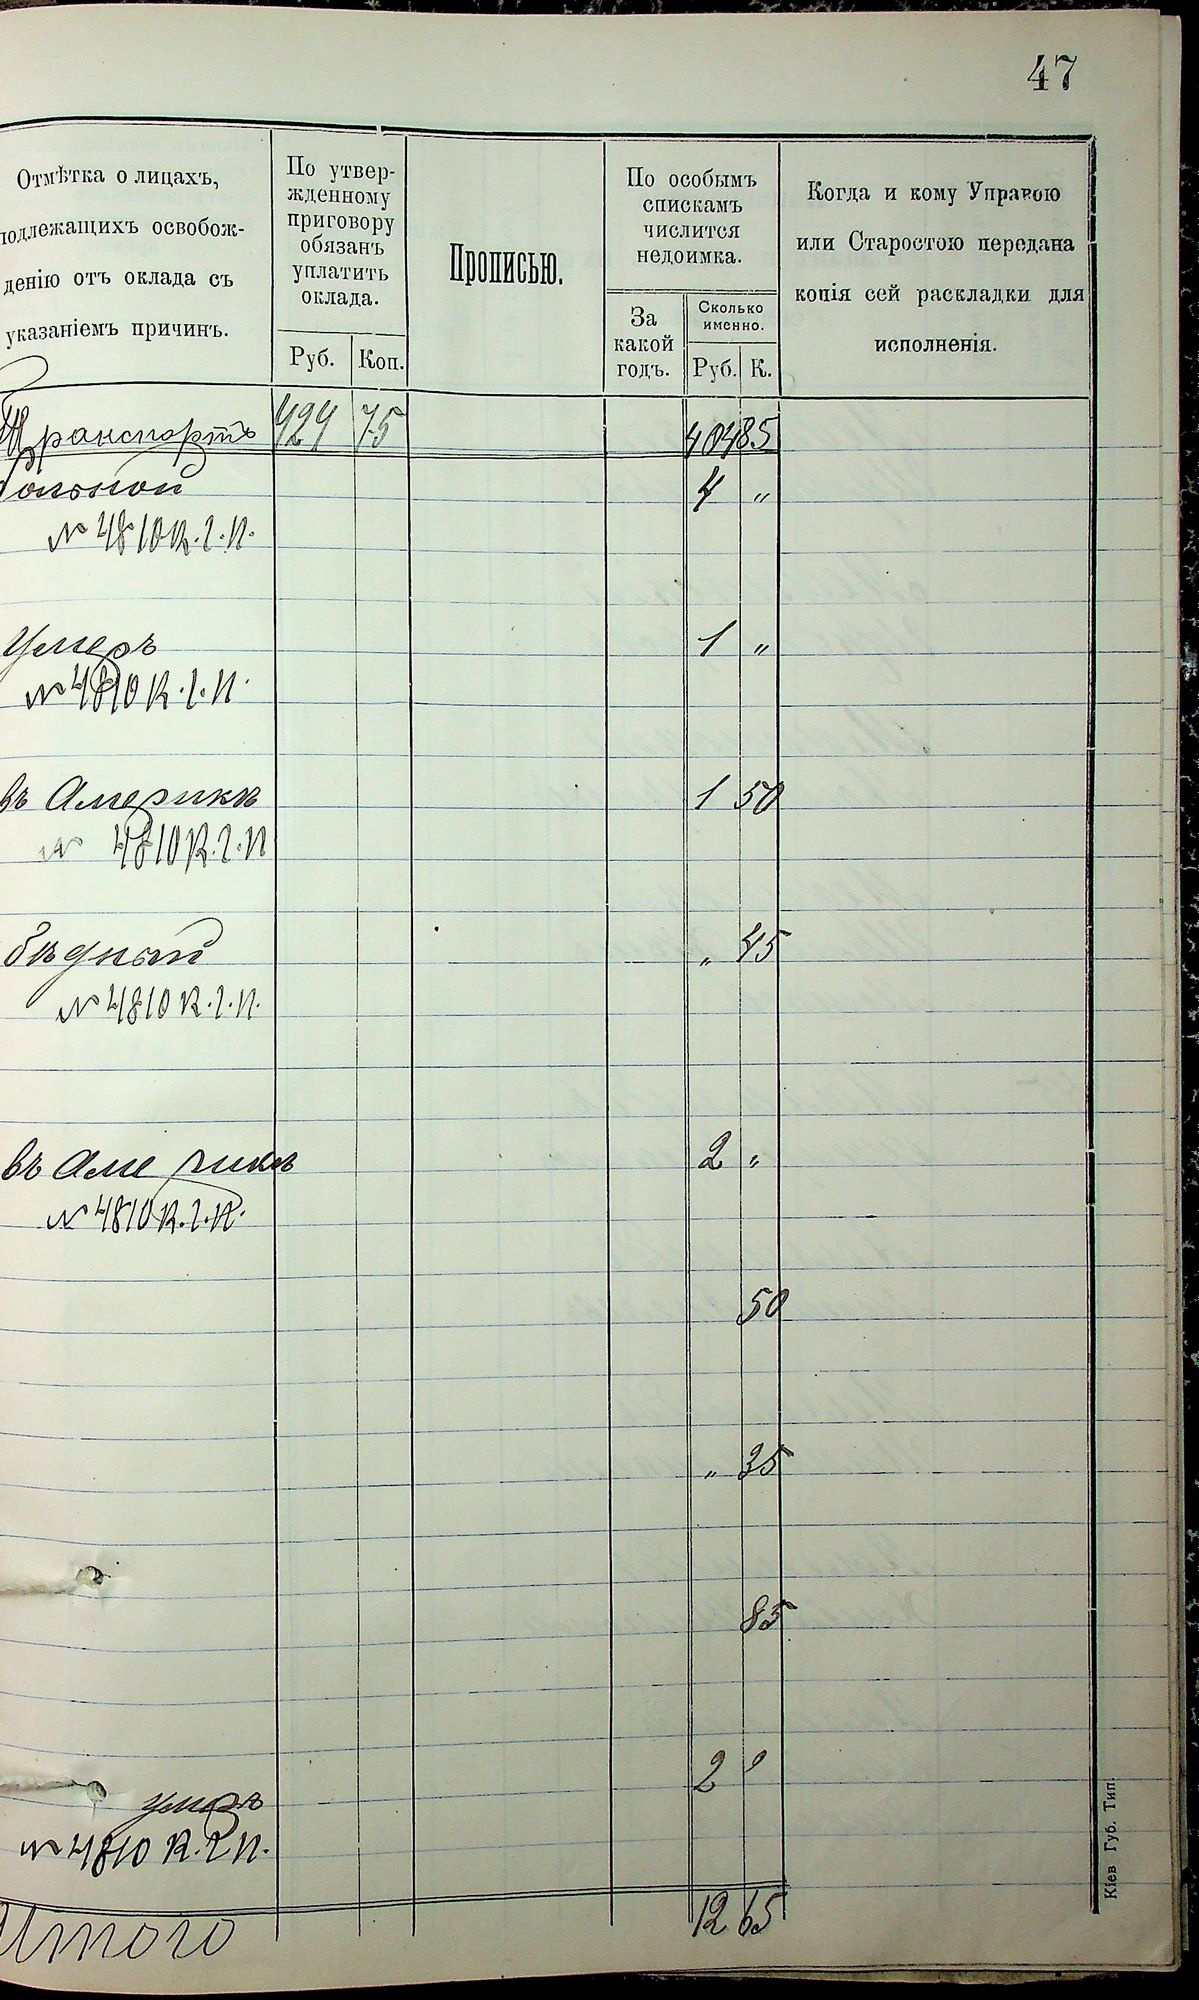 47
Отмѣтка о лицахъ,
подлежащихъ освобож-
денію отъ оклада съ
указаніемъ причинъ.
По утвер-
жденному
приговору
обязанъ
уплатить
оклада.
Руб. Коп.
Прописью.
По особымъ
спискамъ
числится
недоимка.
За
какой
годъ.
Сколько
именно.
Руб. К.
Когда и кому Управою
или Старостою передана
копія сей раскладки для
исполненія.
Транспортъ 424 75 404 85
больной 4 "
№ 4810 К.Г.П.
Умеръ 1 "
№ 4810 К.Г.П.
въ Америкѣ 1 50
№ 4810 К.Г.П
бѣдный " 45
№ 4810 К.Г.П.
въ Америкѣ 2 "
№ 4810 К.Г.П.
50
" 35
85
2 "
умеръ
№ 4810 К.Г.П.
Итого 12 65
Кіев Губ. Тип.